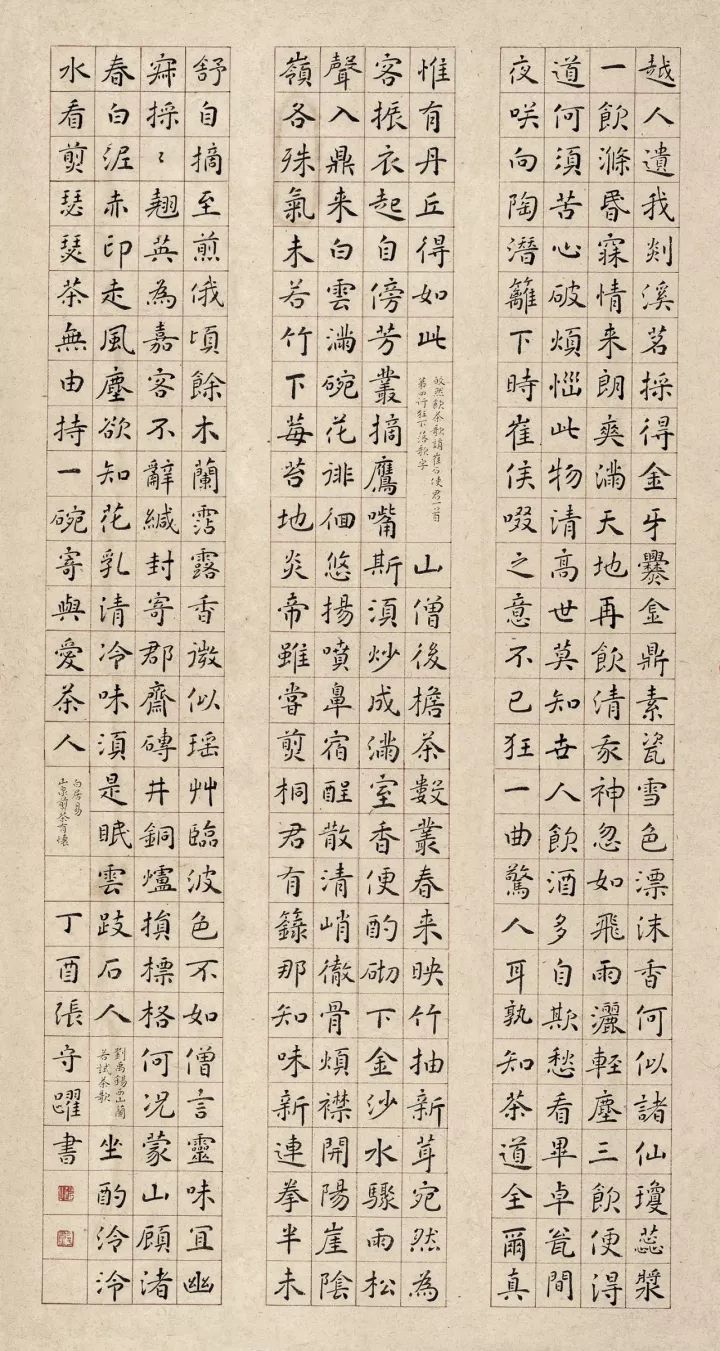 越人遺我剡溪茗採得金牙爨金鼎素瓷雪色漂沫香何似諸仙瓊蕊漿
一飲滌昬寐情来朗爽滿天地再飲清豖神忽如飛雨灑輕塵三飲便得
道何須苦心破煩惱此物清高世莫知世人飲酒多自欺愁看畢卓瓮間
夜咲向陶潛籬下時崔侯啜之意不已狂一曲驚人耳孰知茶道全爾真
惟有丹丘得如此
皎然飲茶歌誚崔石使君一首
第四行狂下落歌字
山僧後檐茶數叢春来映竹抽新茸宛然為
客振衣起自傍芳叢摘鷹嘴斯須炒成滿室香便酌砌下金沙水驟雨松
聲入鼎来白雲滿碗花徘徊悠揚噴鼻宿酲散清峭徹骨煩襟開陽崖陰
嶺各殊氣未若竹下莓苔地炎帝雖嘗剪桐君有籙那知味新連拳半未
舒自摘至煎俄頃餘木蘭霑露香微似瑶艸臨波色不如僧言靈味宜幽
寂採〻翹英為嘉客不辭緘封寄郡齋磚井銅爐損標格何況蒙山顧渚
春白泥赤印走風塵欲知花乳清冷味須是眠雲跂石人
劉禹錫西山蘭
若試茶歌
坐酌泠泠
水看剪瑟瑟茶無由持一碗寄與愛茶人
白居易
山泉剪茶有懷
丁酉張守躍書